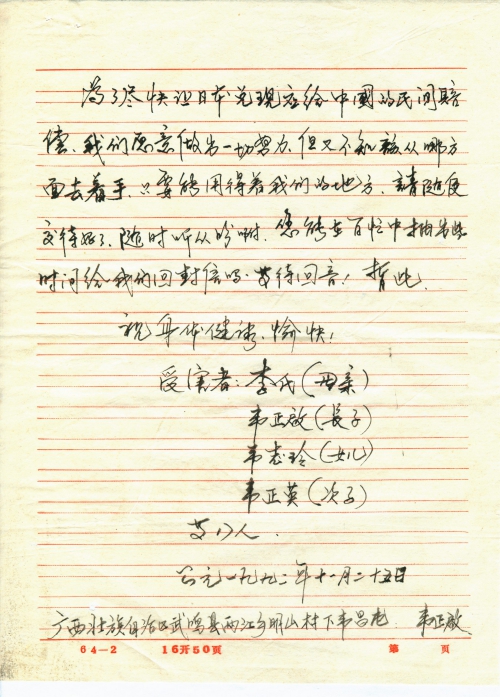 为了尽快让日本兑现应给中國的民间賠
偿，我们愿意做出一切努力，但又不知該从哪方
面去着手，只要能用得着我们的地方，請随便
交待好了，随时听从吩咐。您能在百忙中抽出些
时间给我们回封信吗，等待回音！暂此，
祝身体健康，愉快！
受害者：李氏（母亲）
韦正啟（長子）
韦志玲（女儿）
韦正英（次子）
等人．
公元一九九二年十一月二十五日
广西壮族自治区武鸣县两江乡明山村下韦昌屯 韦正啟
64-2 16开50页 第 页